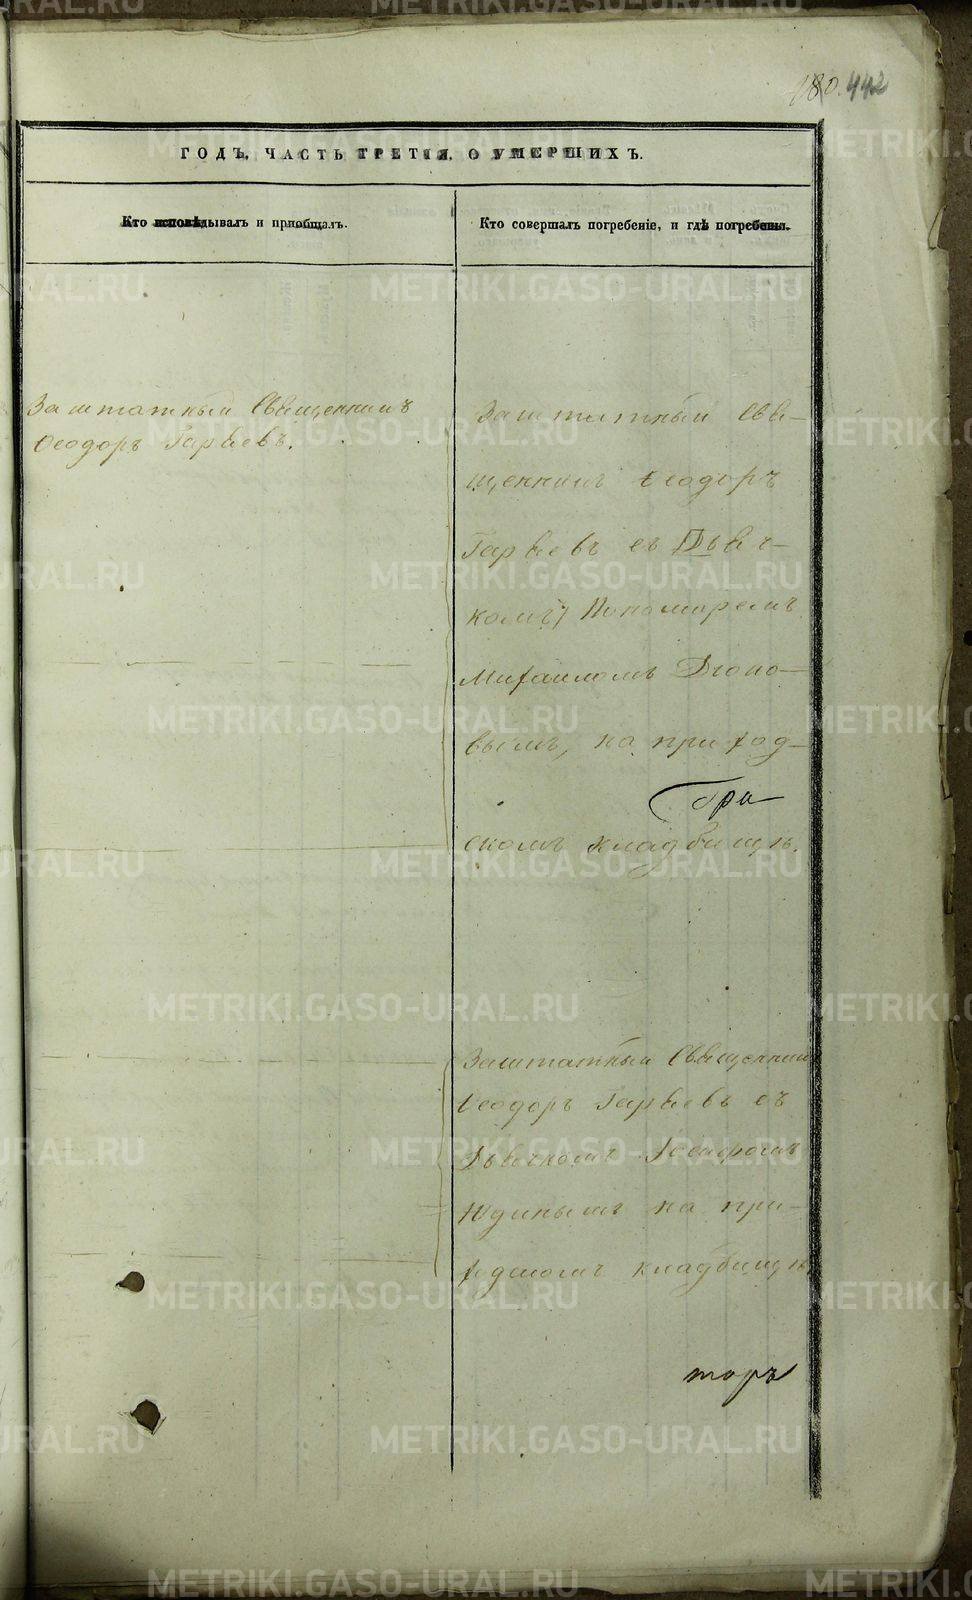 180. 442
ГОДЪ, ЧАСТЬ ТРЕТІЯ, О УМЕРШИХЪ.
Кто исповѣдывалъ и пріобщалъ.
Кто совершалъ погребеніе, и гдѣ погребены.
Заштатный Священникъ
Ѳеодоръ Гаряевъ.
Заштатный Свя-
щенникъ Ѳеодоръ
Гаряевъ съ Дьяч-
комъ, Пономаремъ
Михаиломъ
вымъ, на приход-
скомъ кладбищѣ.
Заштатный Священникъ
Ѳеодоръ Гаряевъ съ
Дьячкомъ
Юдинымъ на при-
ходскомъ кладбищѣ
торъ
METRIKI.GASO-URAL.RU